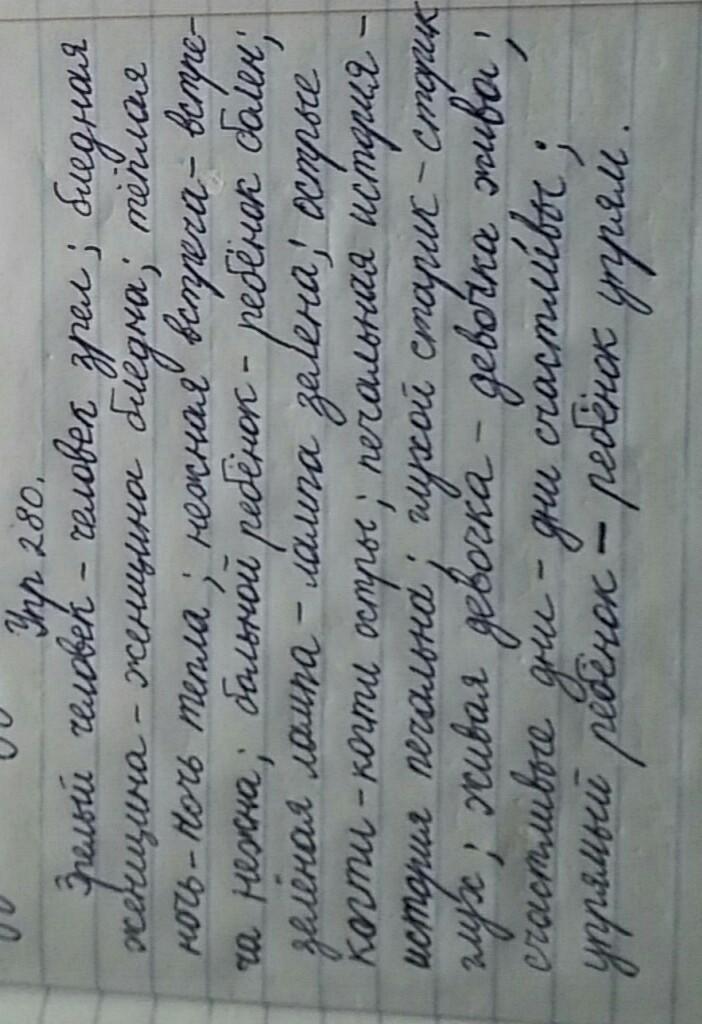 Упр 280.
Зрелый человек - человек зрел; бледная
женщина - женщина бледна; тёплая
ночь - ночь тепла; нежная встреча - встре-
ча нежна; больной ребёнок - ребёнок болен;
зелёная лампа - лампа зелена; острые
когти - когти остры; печальная история -
история печальна; глухой старик - старик
глух; живая девочка - девочка жива;
счастливые дни - дни счастливы;
упрямый ребёнок - ребёнок упрям.